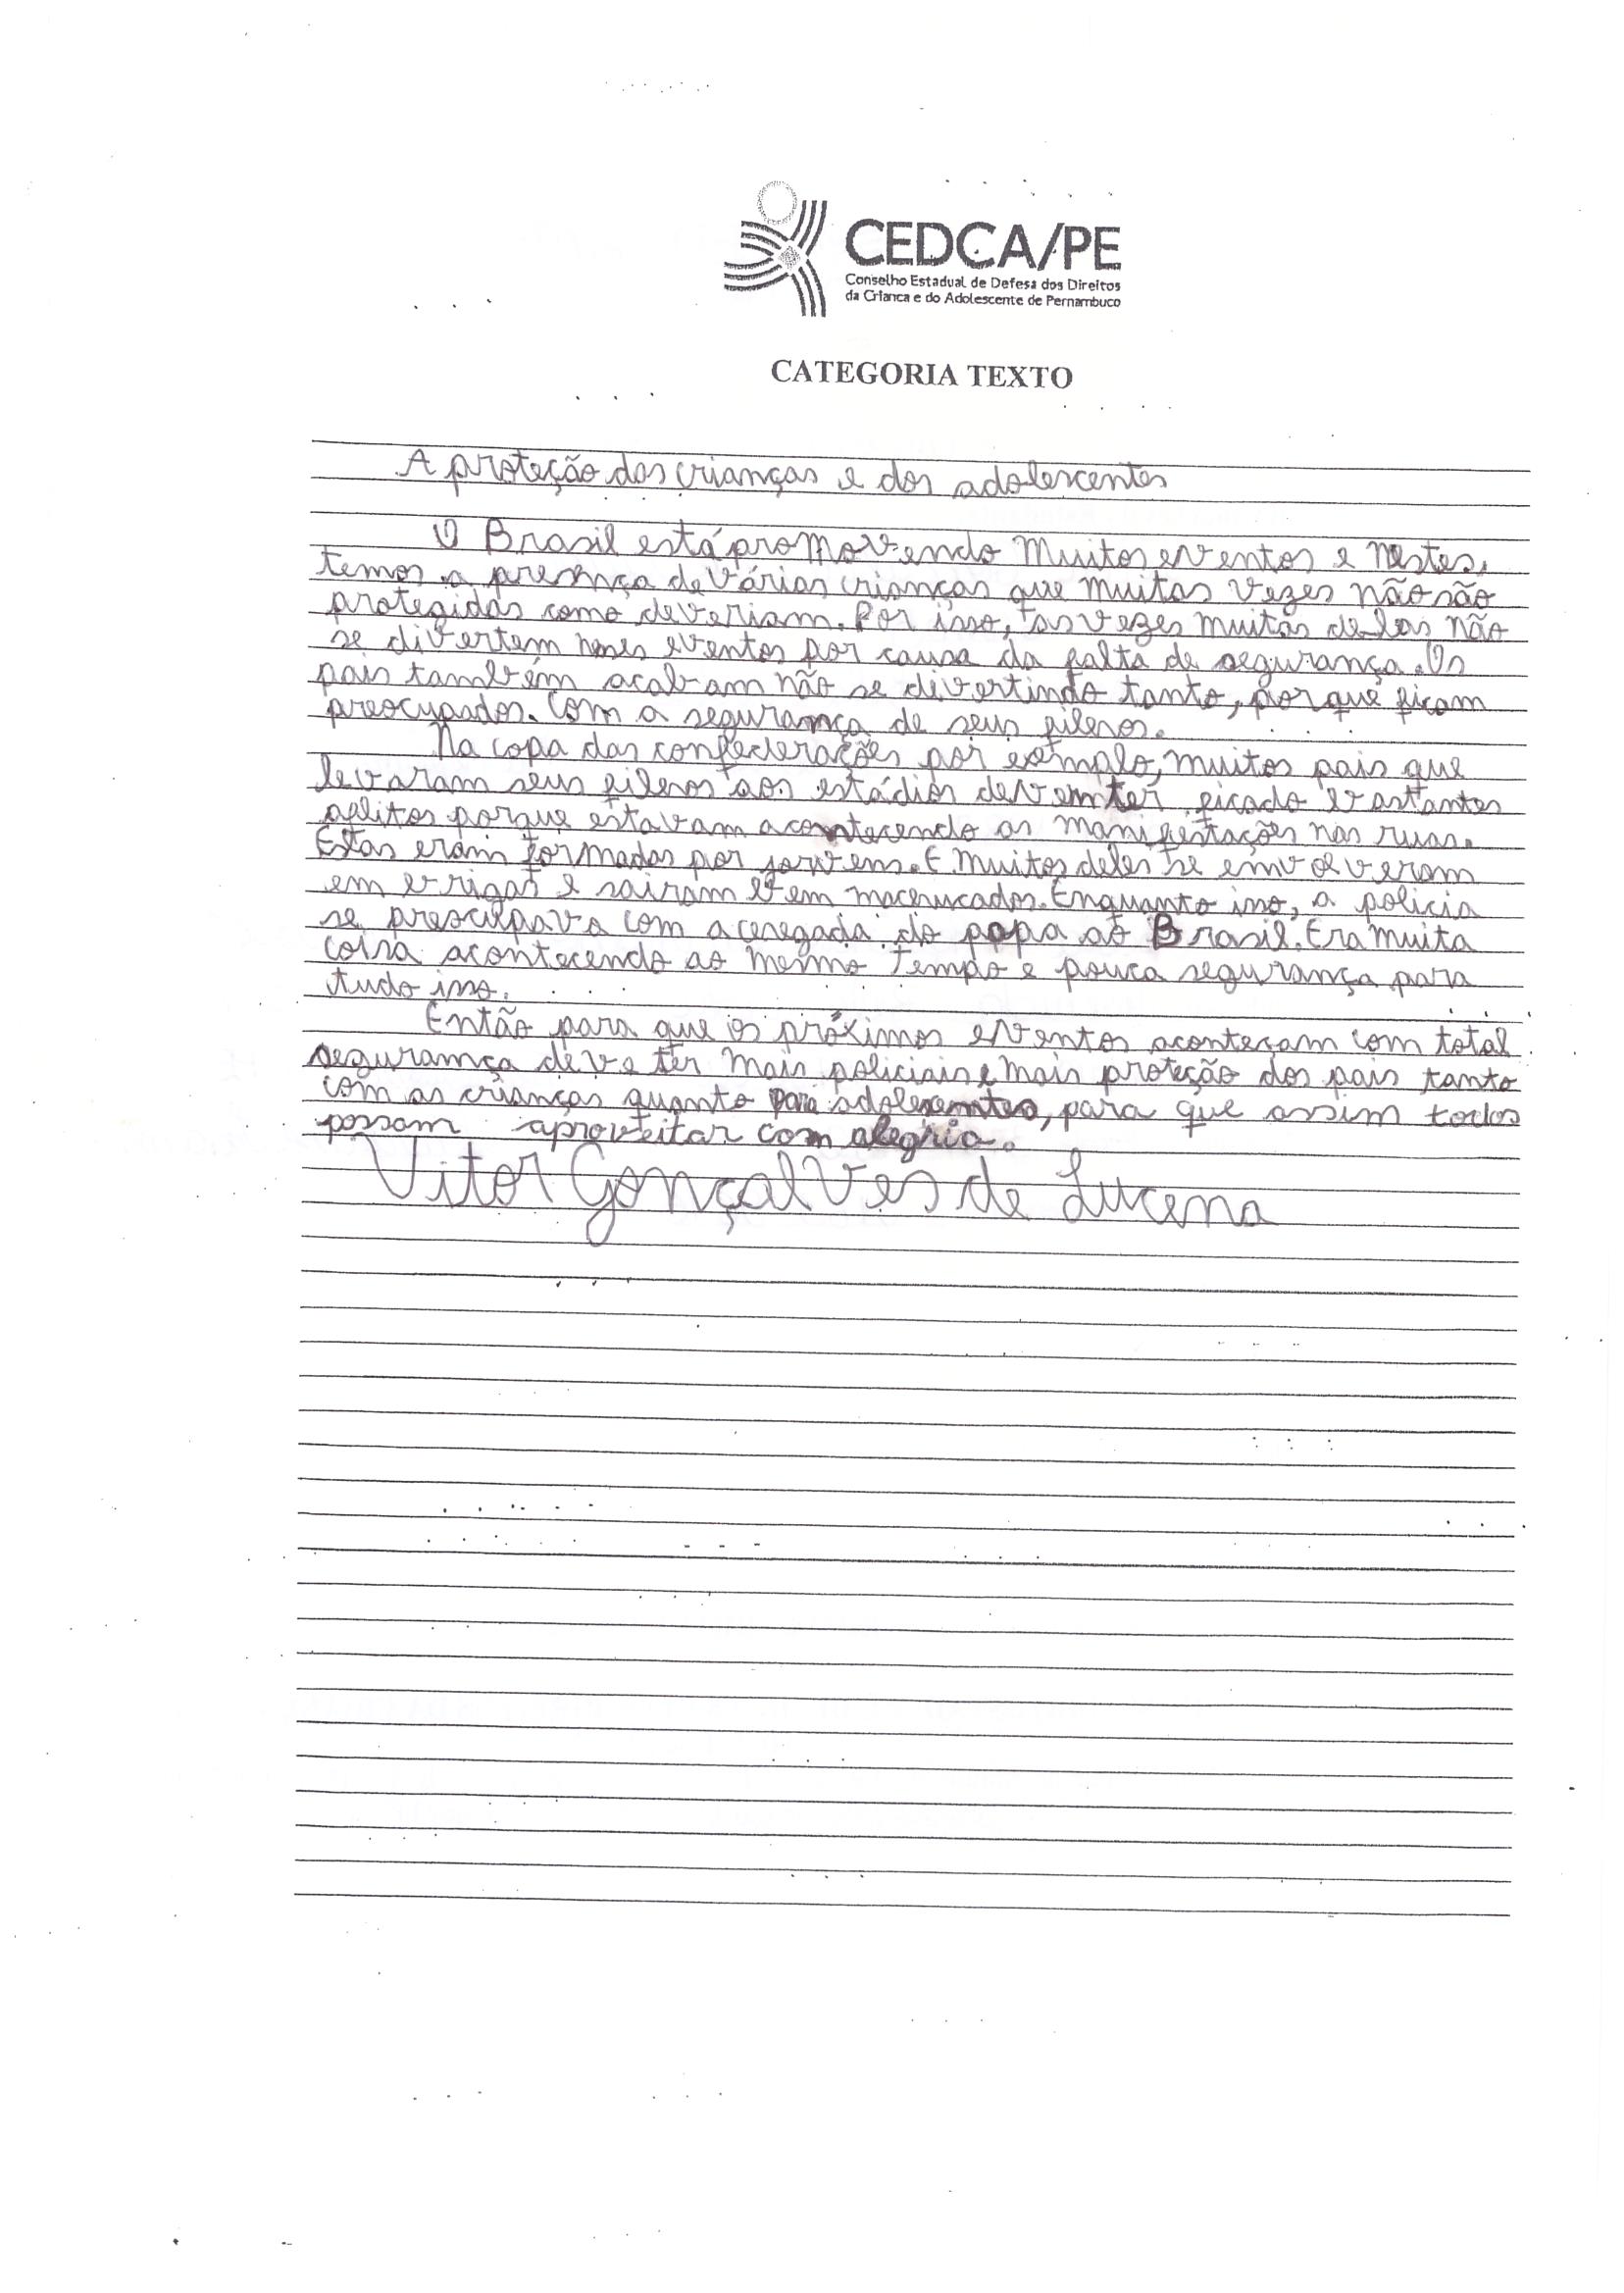 CEDCA/PE
Conselho Estadual de Defesa dos Direitos
da Criança e do Adolescente de Pernambuco
CATEGORIA TEXTO
A proteção das crianças e dos adolescentes
O Brasil está promovendo muitos eventos e nestes,
temos a presença de várias crianças que muitas vezes não são
protegidas como deveriam. Por isso, as vezes muitas delas não
se divertem neses eventos por causa da falta de segurança. Os
pais também acabam não se divertindo tanto, porque ficam
preocupados. Com a segurança de seus filhos.
Na copa das confederações por exemplo, muitos pais que
levaram seus filhos aos estádios devem ter ficado bastantes
aflitos porque estavam acontecendo as manifestações nas ruas.
Estas eram formadas por jovens. E muitos deles se envolveram
em brigas e sairam bem machucados. Enquanto isso, a policia
se preocupava com a chegada do papa ao Brasil. Era muita
coisa acontecendo ao mesmo tempo e pouca segurança para
tudo isso.
Então para que os próximos eventos aconteçam com total
segurança deve ter mais policiais e mais proteção dos pais tanto
com as crianças quanto para adolescentes, para que assim todos
possam aproveitar com alegria.
Vitor Gonçalves de Lucena